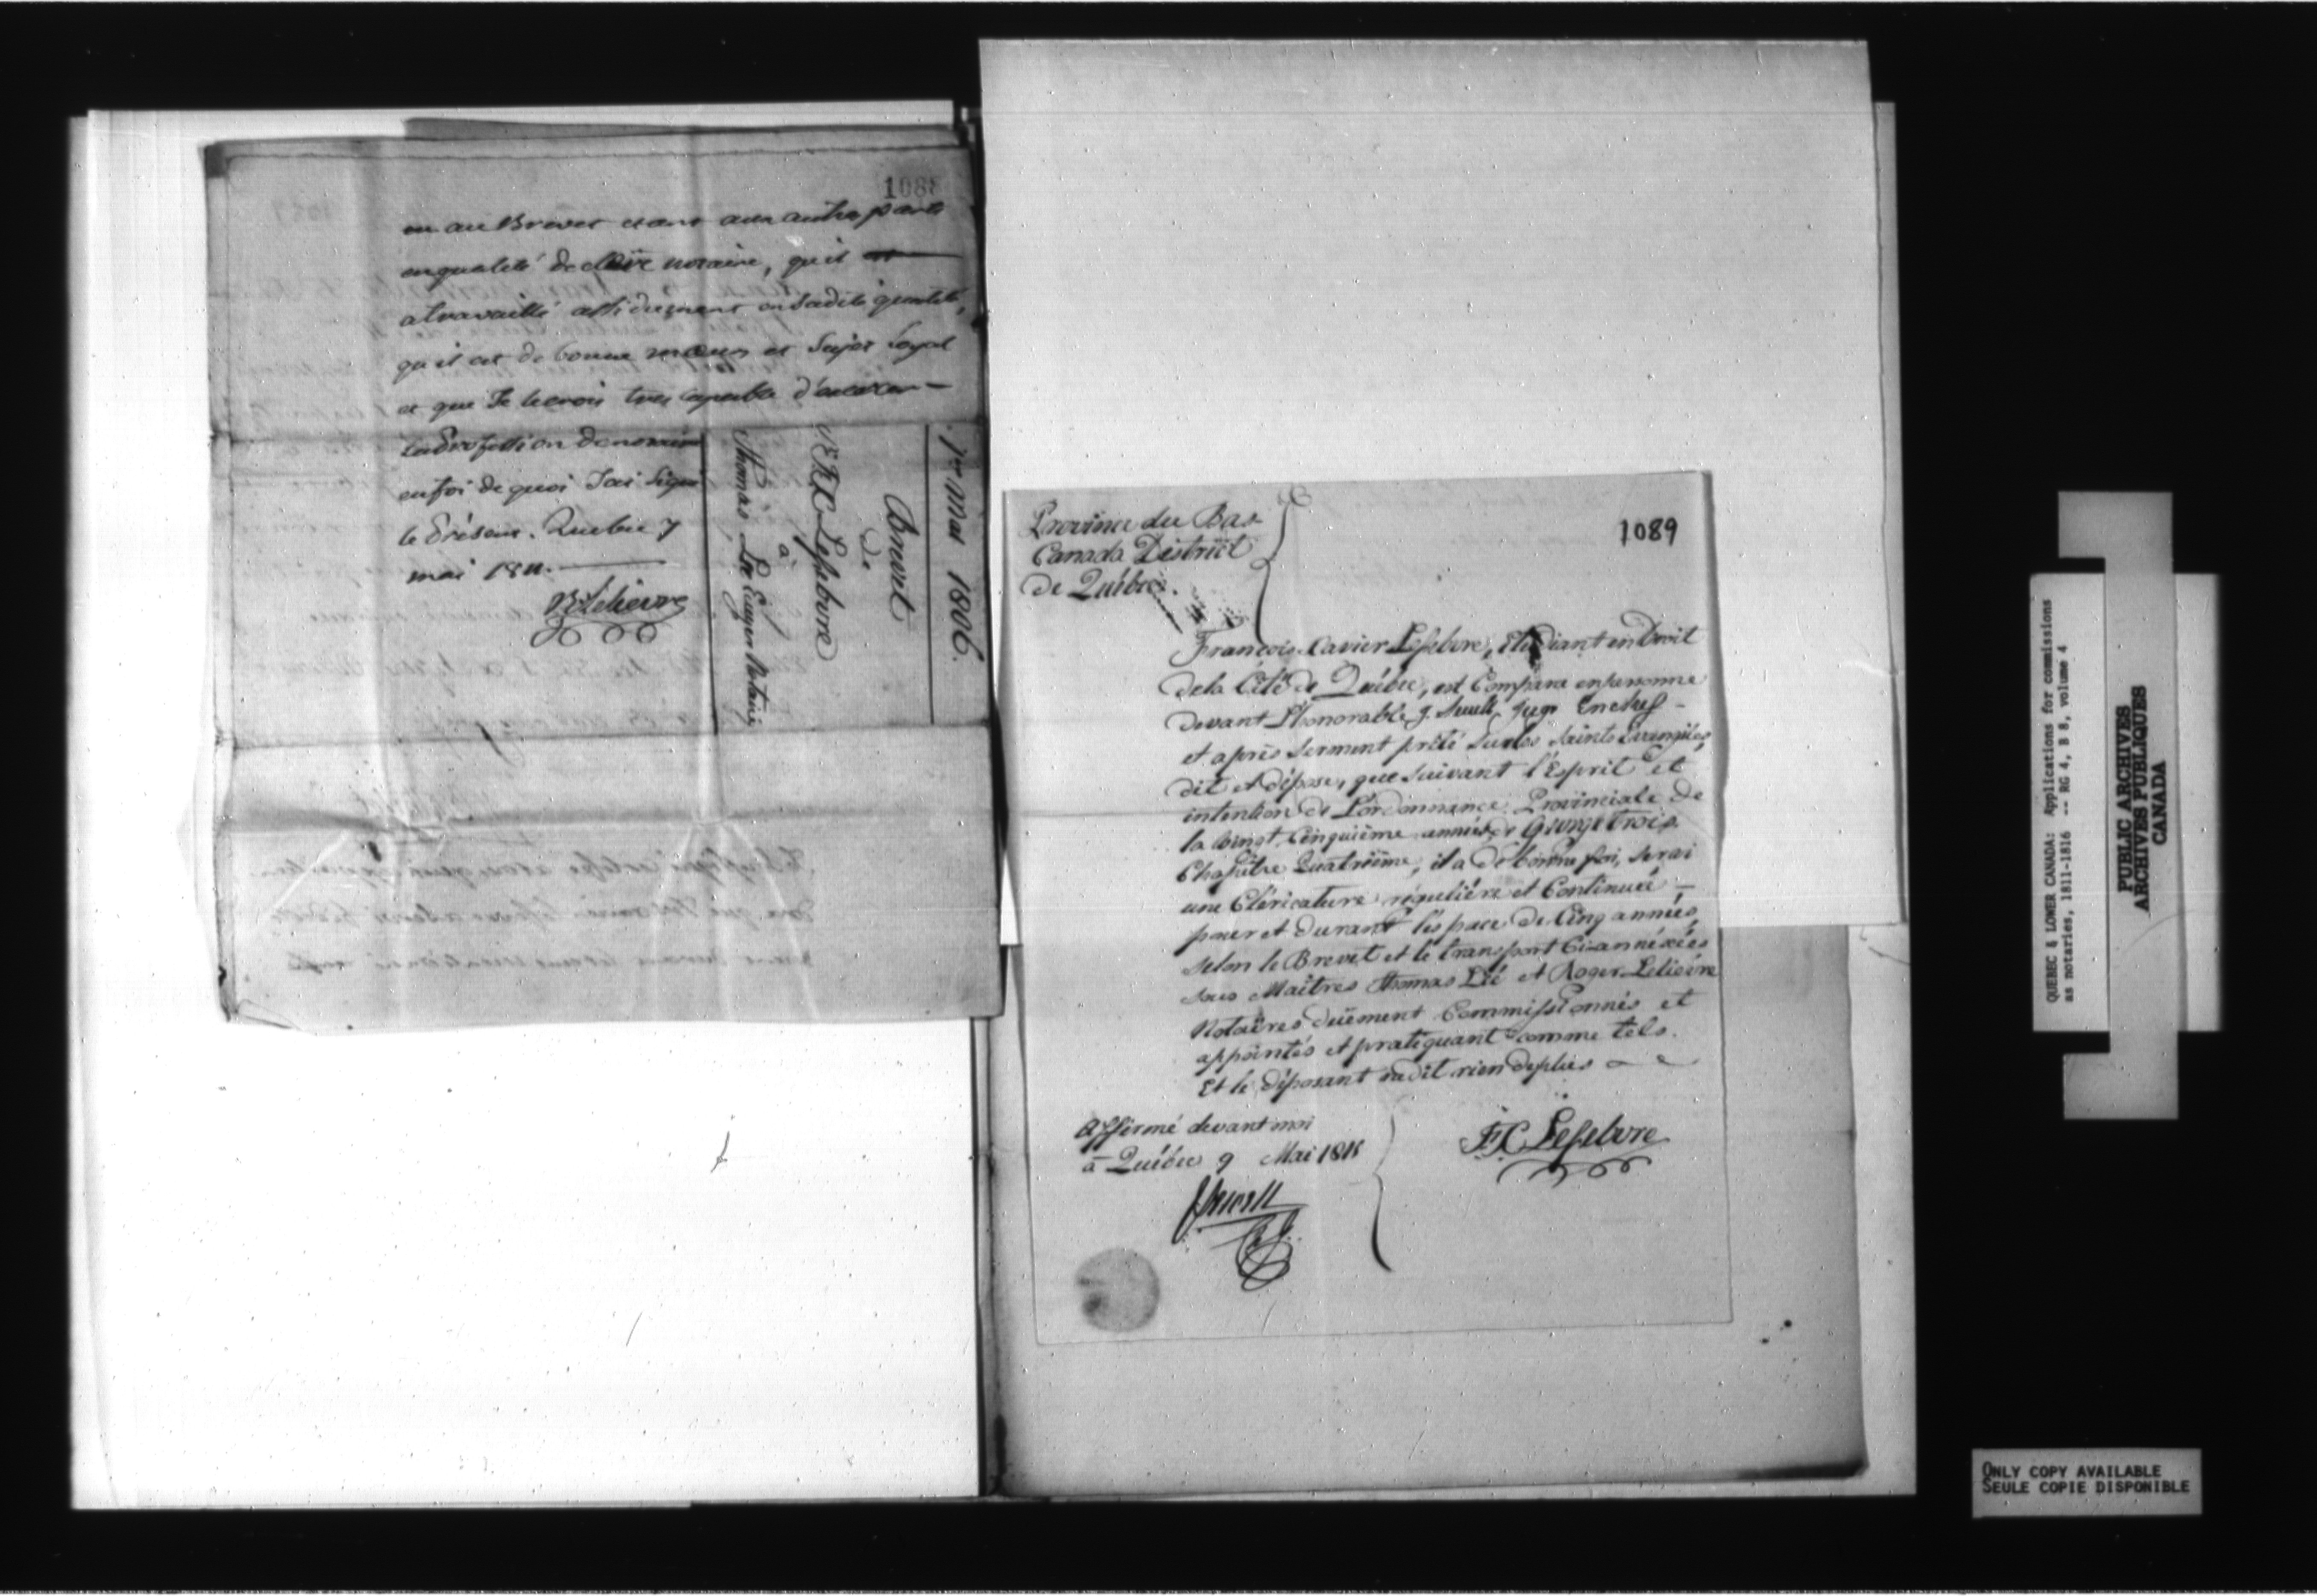 1088
en au Brevet étant aux autres parts
en qualité de clerc notaire, qu'il
a travaillé assiduement en sadite qualité,
qu'il est de bonne mœurs et Sujet Loyal
et que Je le crois tres capable d'exercer
la Profession de notaire
en foi de quoi J'ai Signé
le Présent. Quebec 7
mai 1811.
R. Lelievre
1er Mai 1806.
Brevet
de
F.X. Lefebvre
à
Thomas Lee Ecuyer Notaire
1089
Province du Bas
Canada District
de Québec.
François Xavier Lefebvre, Etudiant en Droit
de la Cité de Québec, est Comparu en personne
devant L'honorable J. Sewell Juge En chef
et après serment prêté sur les Saints Evangiles,
dit et dépose, que suivant l'Esprit et
intention de L'ordonnance Provinciale de
la vingt Cinquième année de George Trois
Chapitre Quatrième, il a de bonne foi, servi
une Cléricature régulière et Continuée
pour et durant l'éspace de Cinq années,
selon le Brevet et le transport Ci-annéxées
sous Maitres Thomas Lée et Roger Lelievre
Notaires duëment Commissionnés et
appointés et pratiquant comme tels.
Et le déposant ne dit rien de plus
Affirmé devant moi
à Québec 9 Mai 1811
F.X. Lefebvre
J Sewell
C.J.
QUEBEC & LOWER CANADA: Applications for commissions
as notaries, 1811-1816 -- RG 4, B 8, volume 4
PUBLIC ARCHIVES
ARCHIVES PUBLIQUES
CANADA
ONLY COPY AVAILABLE
SEULE COPIE DISPONIBLE